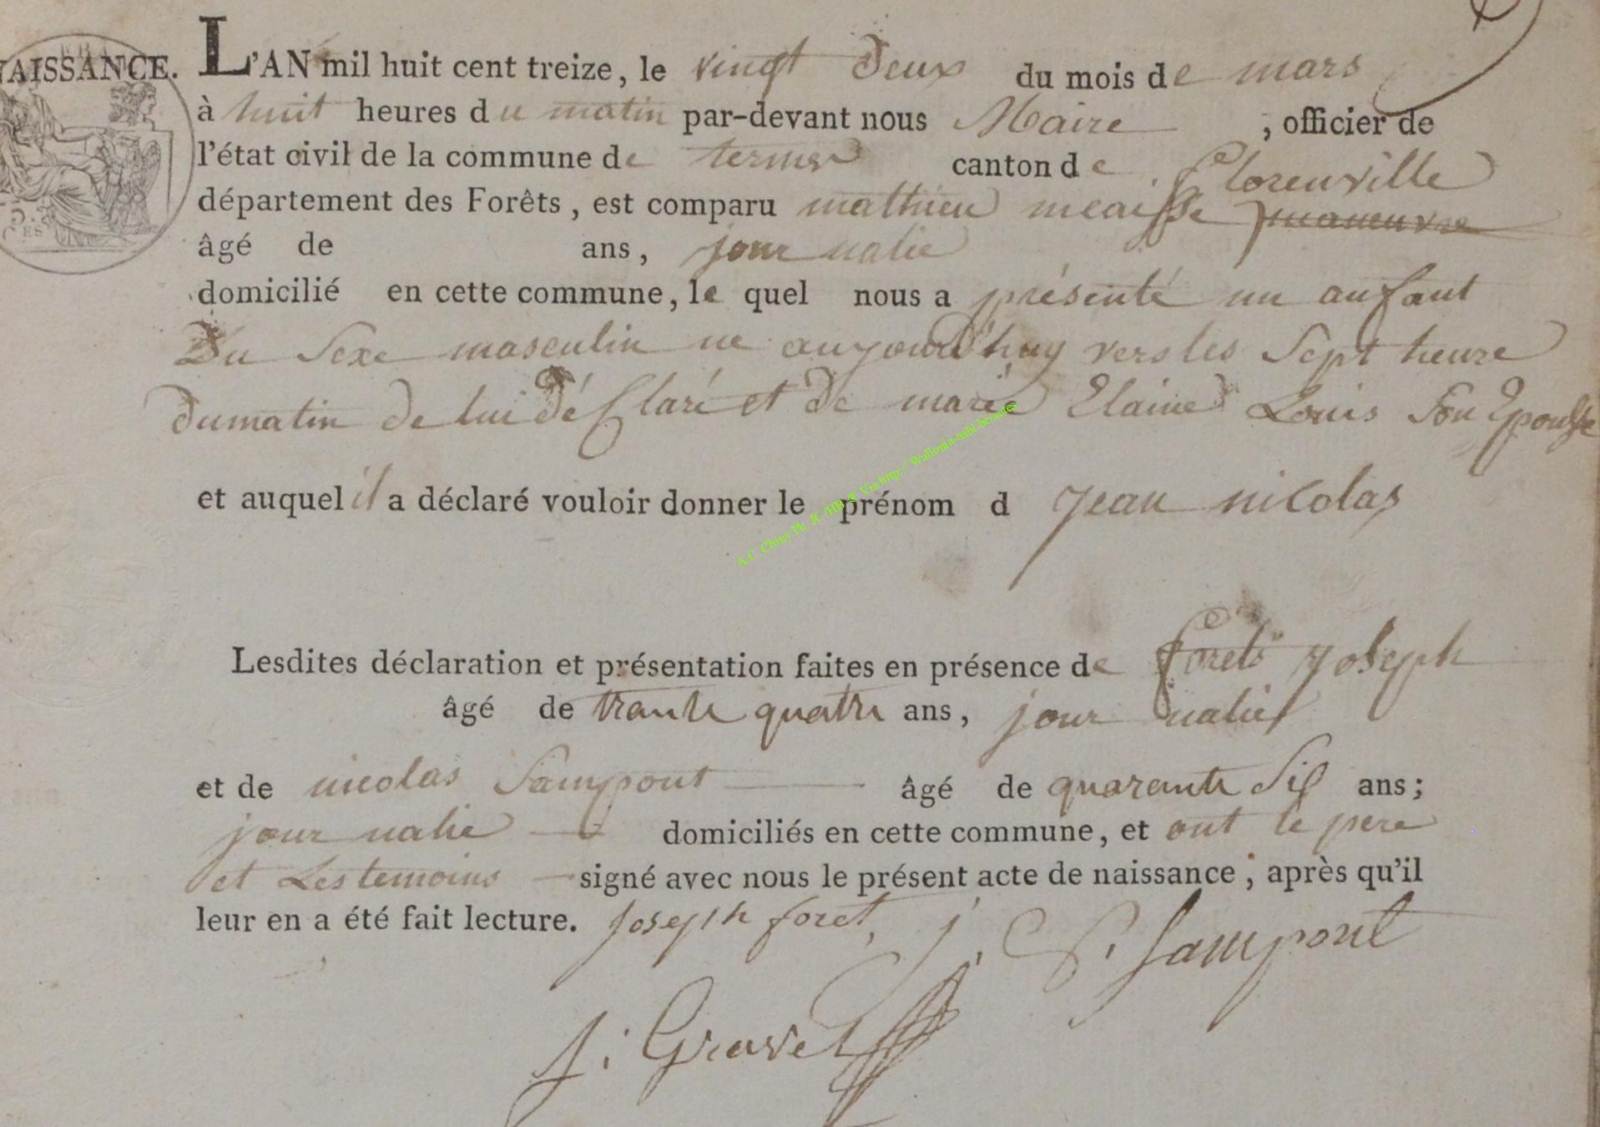 NAISSANCE.
L'AN mil huit cent treize, le vingt deux du mois de mars
à huit heures du matin par-devant nous Maire , officier de
l'état civil de la commune de termes canton de Florenville
département des Forêts, est comparu mathieu meaisse maneuvre
âgé de ans, jour nalie
domicilié en cette commune, le quel nous a présenté un anfant
Du Sexe masculin ne aujourd'huy vers les Sept heure
du matin de lui déClaré et de marie Elaine Louis Son Epousse
et auquel il a déclaré vouloir donner le prénom d Jean nicolas
Lesdites déclaration et présentation faites en présence de forets Joseph
âgé de trante quatre ans, jour nalier
et de nicolas Sampont âgé de quarante Six ans;
jour nalie domiciliés en cette commune, et ont le pere
et Les temoins signé avec nous le présent acte de naissance, après qu'il
leur en a été fait lecture. Joseph foret, j. Sampont
j: Gravet